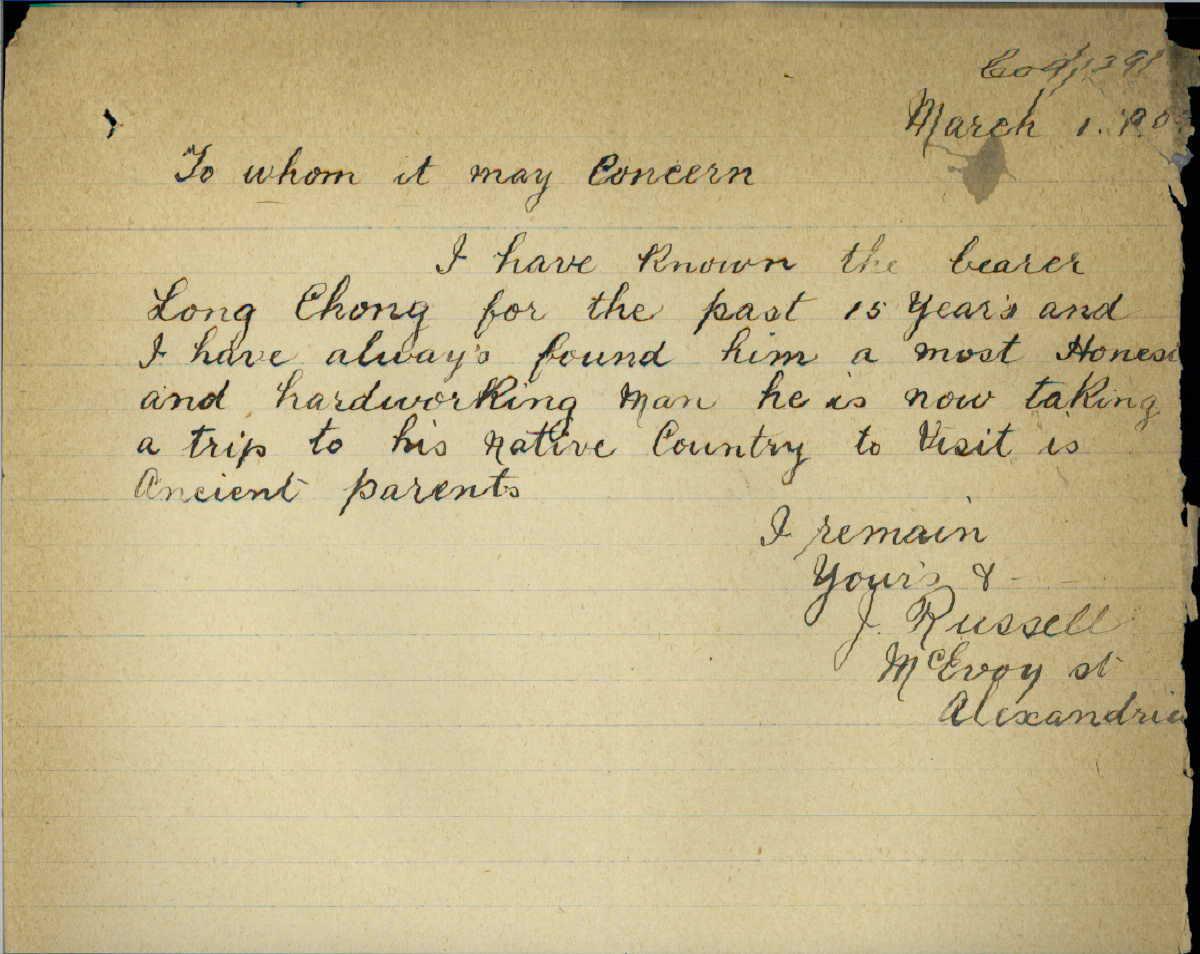 March 1.
To whom it may Concern
I have Known the bearer
Long Chong for the past 15 Year's and
I have alway's found him a most Honest
and hardworKing Man he is now taKing
a trip to his Native Country to Visit is
Ancient parents
I remain
Your's &
J. Russell
McEvoy st
Alexandria